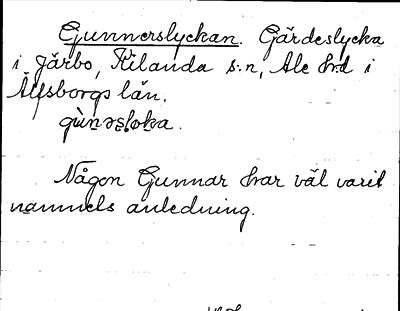 Gunnerslyckan. Gärdeslycka
i Järbo, Kilanda s:n, Ale hd i
Älfsborgs län.
Någon Gunnar har väl varit
namnets anledning.